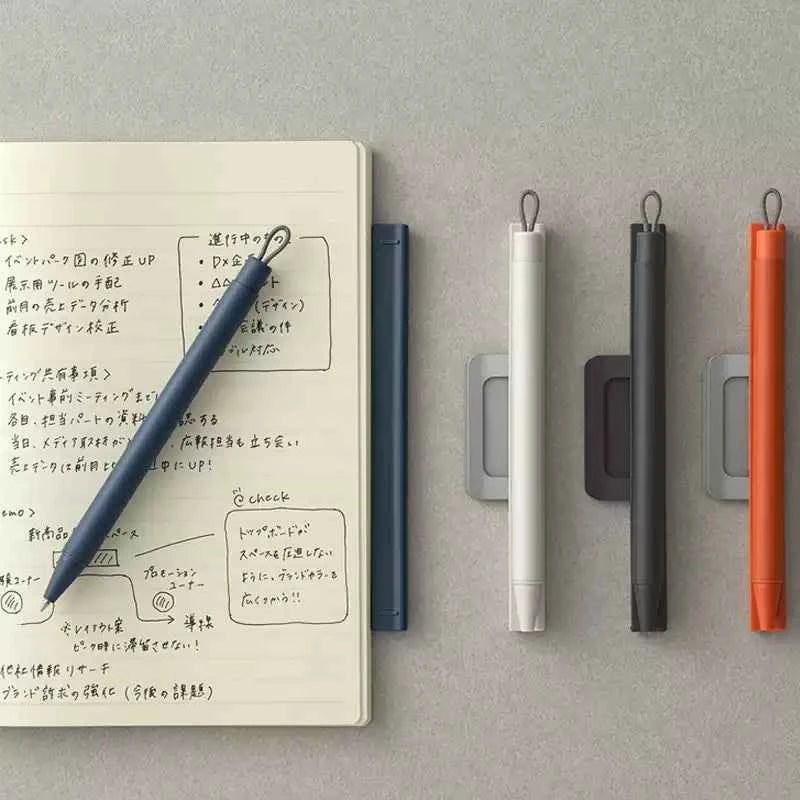 sk>
イベントパーク図の修正UP
展示用ツールの手配
前月の売上データ分析
看板デザイン校正
進行中のもの
• DX企
• △△ント
• (デザイン)
• 会議の件
ブル対応
ーティング共有事項>
イベント事前ミーティングまでに
各自、担当パートの資料認する
当日、メディア取材が、広報担当も立ち会い
売上データは前月比中にUP!
emo>
新商品ペース
コーナー
プロモーション
コーナー
→ 導線
※レイアウト案
ピーク時に滞留させない!
@check
トップボードが
スペースを圧迫しない
ように、ブランドカラーを
広くかう!!
他社情報リサーチ
ブランド訴求の強化(今後の課題)